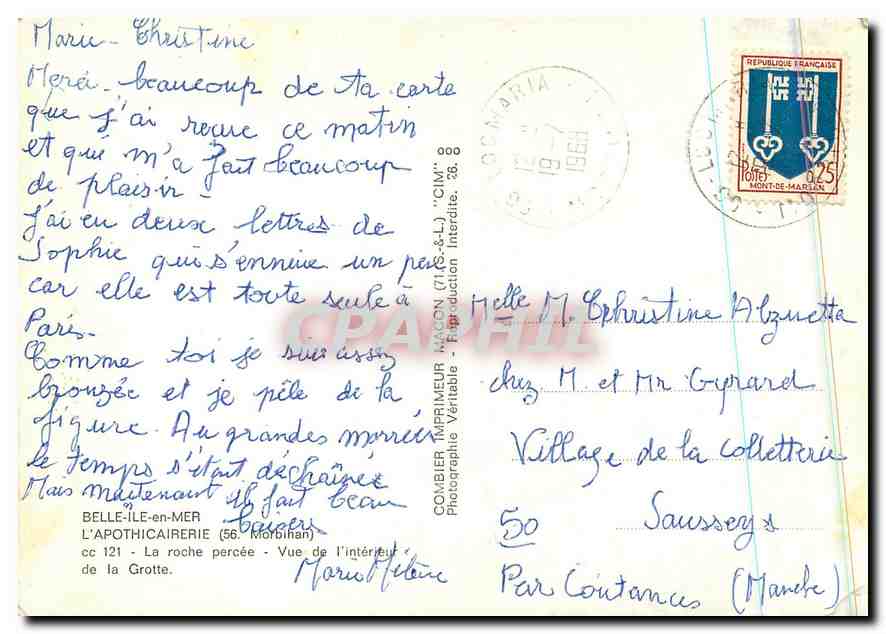 Marie-Christine
Merci beaucoup de ta carte
que j'ai reçue ce matin
et que m'a fait beaucoup
de plaisir -
J'ai eu deux lettres de
Sophie qui s'ennuie un peu
car elle est toute seule à
Paris.
Comme toi je suis assez
bronzée et je pèle de la
figure. Au grandes marrées
le temps s'était déchaînée
Mais maintenant il fait beau
baisers
Marie Hélène
BELLE-ÎLE-en-MER
L'APOTHICAIRERIE (56. Morbihan)
cc 121 - La roche percée - Vue de l'intérieur
de la Grotte.
COMBIER IMPRIMEUR MACON (71. S.-&-L.) "CIM"
Photographie Véritable - Reproduction Interdite.
CPAPHIL
LOCMARIA
19-7
1968
REPUBLIQUE FRANÇAISE
POSTES
0,25
MONT-DE-MARSAN
Melle M. Christine Abzuetta
chez M. et Mr Gyrard
Village de la Colletterie
50 Saussey
Par Coutances (Manche)